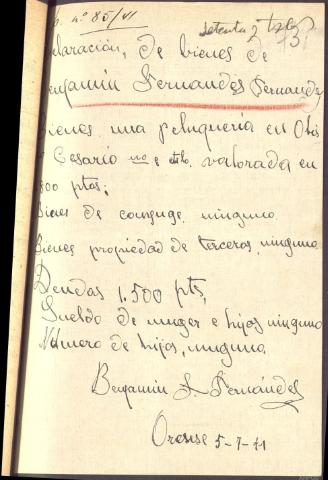 nº 85/VI
setenta y tres 73
claración, de bienes de
enjamin Fernandes Fernandes
Bienes una peluquería en Obis
Cesario nº e valorada en
500 ptas;
Bienes de conyuge, ninguno
Bienes propiedad de terceros, ninguno
Deudas 1.500 pts,
Sueldo de muger e hijos ninguno
Número de hijos, ninguno.
Benjamin F. Fernándes
Orense 5-7-41